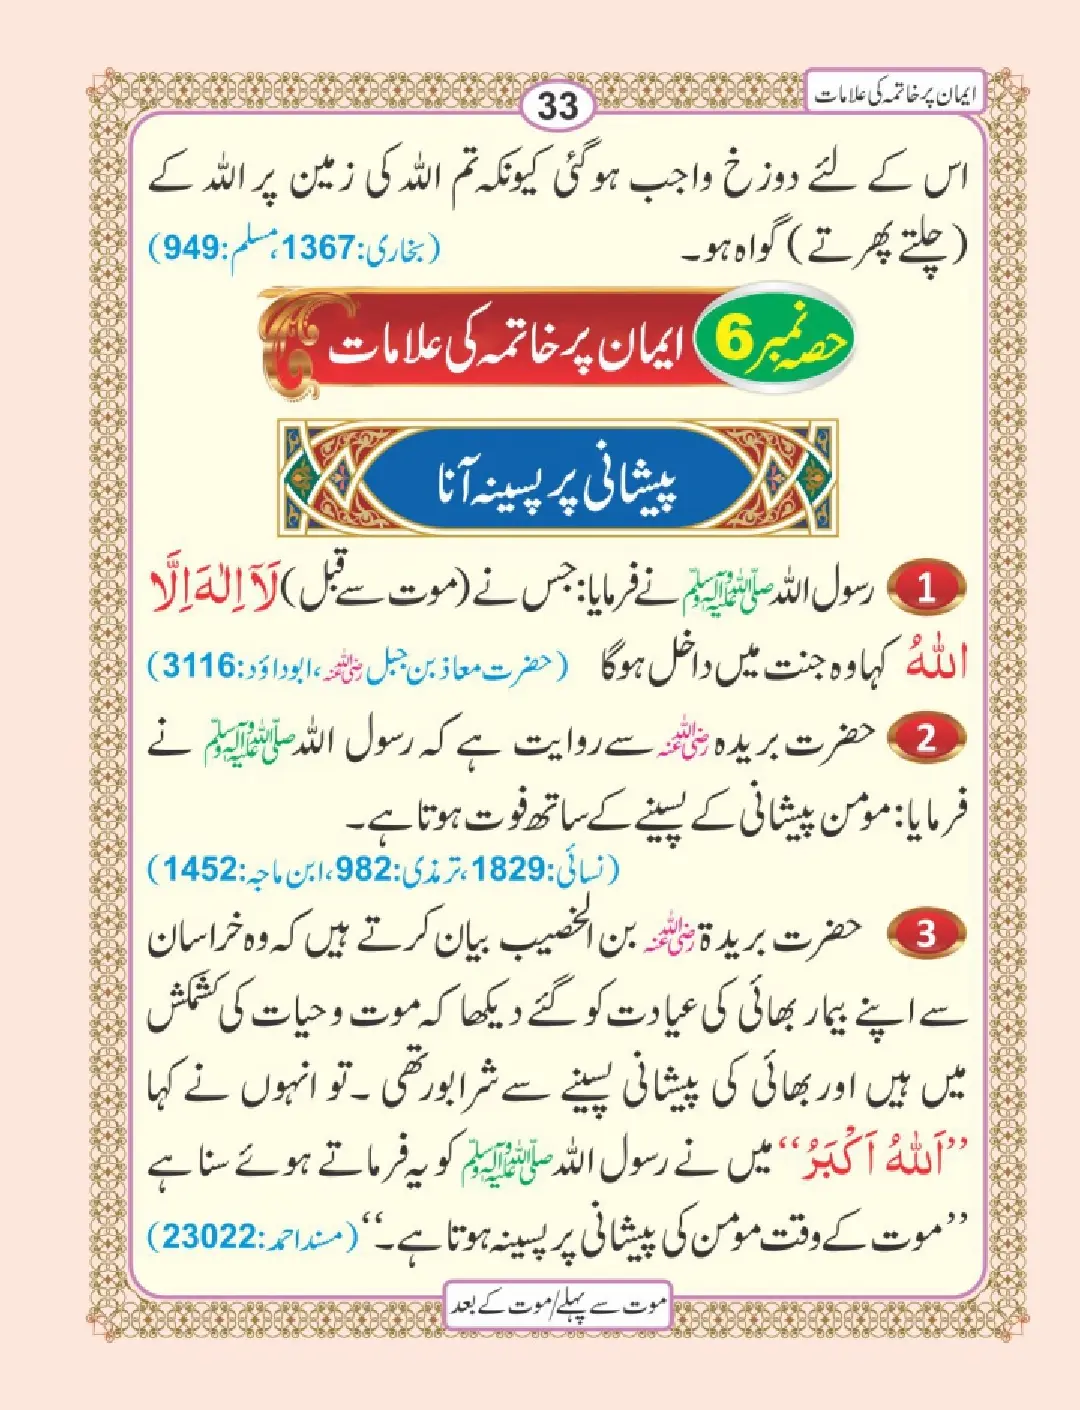 ایمان پر خاتمہ کی علامات
33
اس کے لئے دوزخ واجب ہوگئی کیونکہ تم اللہ کی زمین پر اللہ کے
(چلتے پھرتے) گواہ ہو۔ (بخاری:1367،مسلم:949)
حصہ نمبر 6 ایمان پر خاتمہ کی علامات
پیشانی پر پسینہ آنا
1 رسول اللہ ﷺ نے فرمایا: جس نے (موت سے قبل) لَآ اِلٰہَ اِلَّا
اللہُ کہا وہ جنت میں داخل ہوگا (حضرت معاذ بن جبل رضی اللہ عنہ، ابوداؤد:3116)
2 حضرت بریدہ رضی اللہ عنہ سے روایت ہے کہ رسول اللہ ﷺ نے
فرمایا: مومن پیشانی کے پسینے کے ساتھ فوت ہوتا ہے۔
(نسائی:1829، ترمذی:982، ابن ماجہ:1452)
3 حضرت بریدۃ رضی اللہ عنہ بن الخصیب بیان کرتے ہیں کہ وہ خراسان
سے اپنے بیمار بھائی کی عیادت کو گئے دیکھا کہ موت و حیات کی کشمکش
میں ہیں اور بھائی کی پیشانی پسینے سے شرابور تھی ۔ تو انہوں نے کہا
’’اَللہُ اَکْبَرُ‘‘ میں نے رسول اللہ ﷺ کو یہ فرماتے ہوئے سنا ہے
’’موت کے وقت مومن کی پیشانی پر پسینہ ہوتا ہے۔‘‘ (مسند احمد:23022)
موت سے پہلے/موت کے بعد